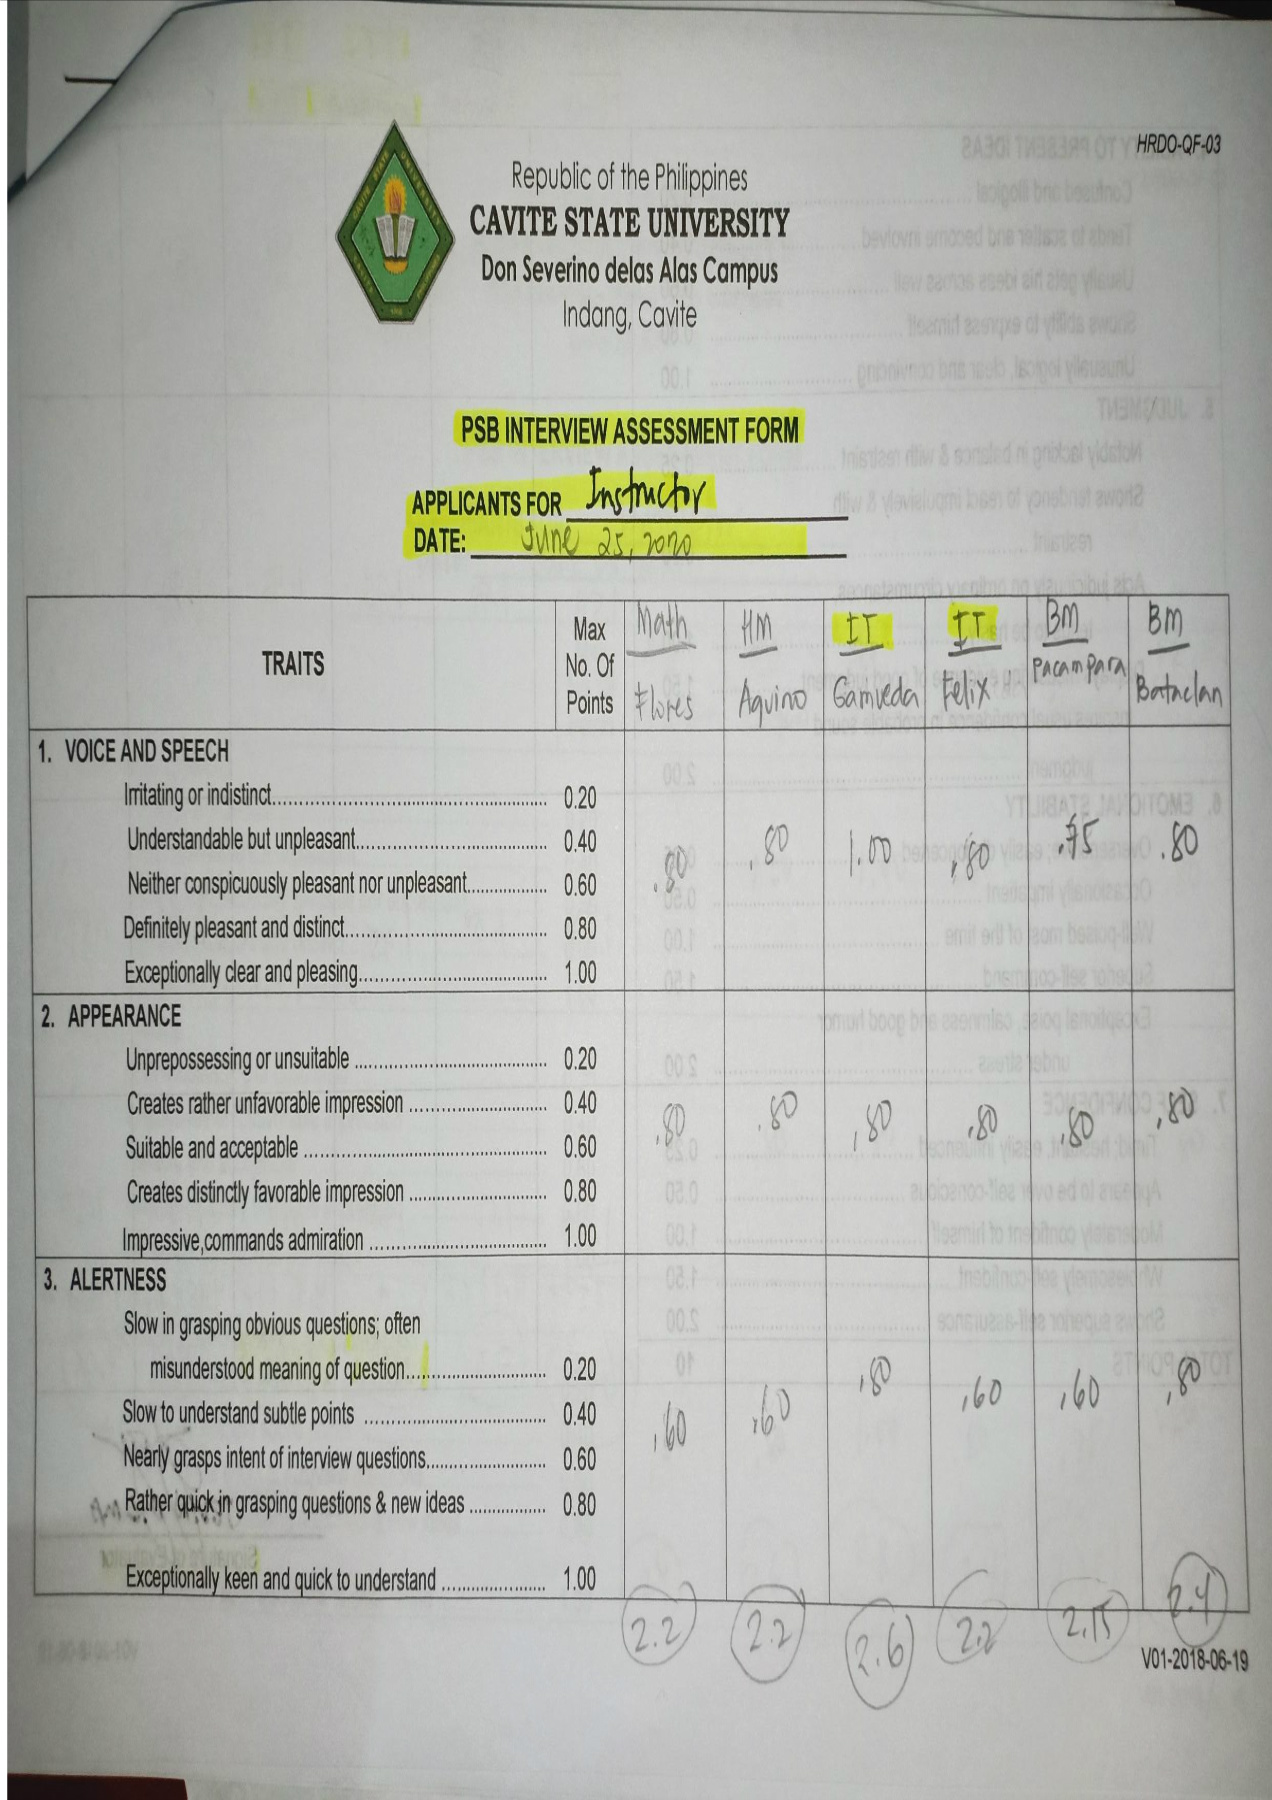 HRDO-QF-03
Republic of the Philippines
CAVITE STATE UNIVERSITY
Don Severino delas Alas Campus
Indang, Cavite
PSB INTERVIEW ASSESSMENT FORM
APPLICANTS FOR Instructor
DATE: June 25, 2020
TRAITS
Max No. Of Points
Math Flores
HM Aquino
IT Gamueda
IT Felix
BM Pacampara
BM Bataclan
1. VOICE AND SPEECH
Irritating or indistinct 0.20
Understandable but unpleasant 0.40
Neither conspicuously pleasant nor unpleasant 0.60
Definitely pleasant and distinct 0.80
Exceptionally clear and pleasing 1.00
.80 .80 1.00 .80 .75 .80
2. APPEARANCE
Unprepossessing or unsuitable 0.20
Creates rather unfavorable impression 0.40
Suitable and acceptable 0.60
Creates distinctly favorable impression 0.80
Impressive,commands admiration 1.00
.80 .80 .80 .80 .80 .80
3. ALERTNESS
Slow in grasping obvious questions; often
misunderstood meaning of question 0.20
Slow to understand subtle points 0.40
Nearly grasps intent of interview questions 0.60
Rather quick in grasping questions & new ideas 0.80
Exceptionally keen and quick to understand 1.00
.60 .60 .80 .60 .60 .80
2.2 2.2 2.6 2.2 2.15 2.4
V01-2018-06-19